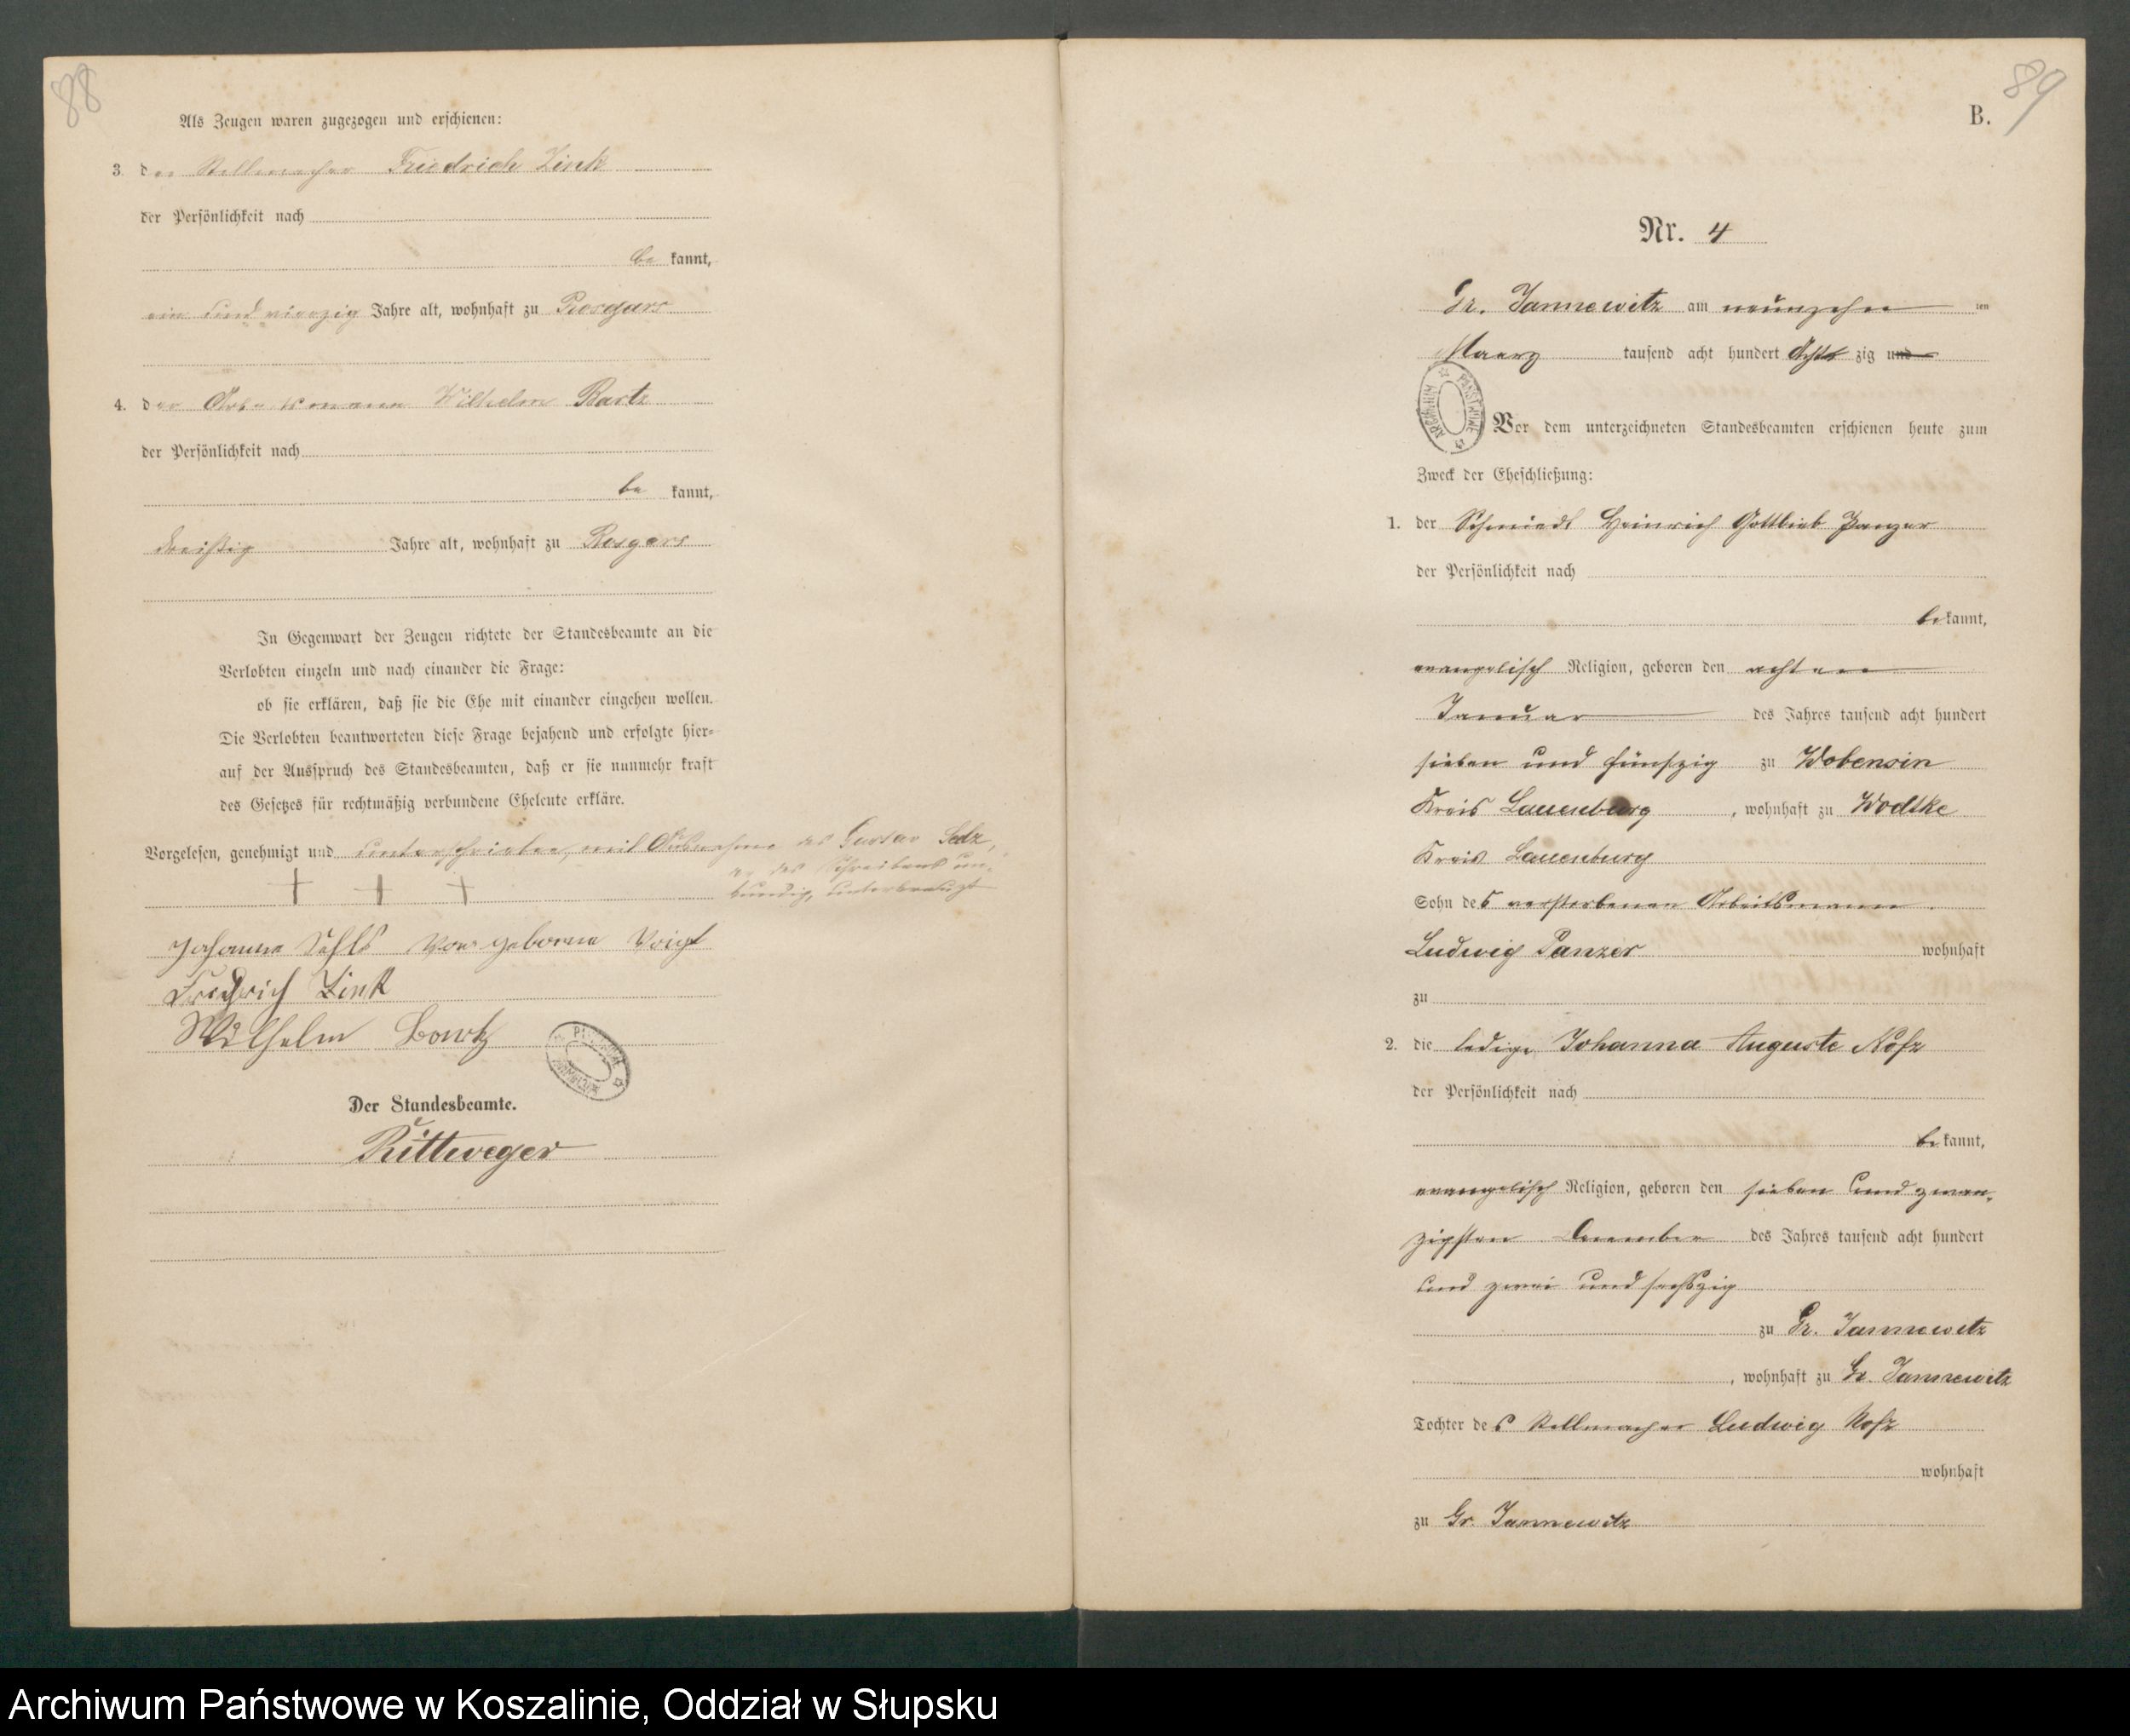 88
Als Zeugen waren zugezogen und erschienen:
3. der Stellmacher Friedrich Zink
der Persönlichkeit nach
be kannt,
ein und vierzig Jahre alt, wohnhaft zu Rosgars
4. der Arbeitsmann Wilhelm Bartz
der Persönlichkeit nach
be kannt,
dreißig Jahre alt, wohnhaft zu Rosgars
In Gegenwart der Zeugen richtete der Standesbeamte an die
Verlobten einzeln und nach einander die Frage:
ob sie erklären, daß sie die Ehe mit einander eingehen wollen.
Die Verlobten beantworteten diese Frage bejahend und erfolgte hier-
auf der Ausspruch des Standesbeamten, daß er sie nunmehr kraft
des Gesetzes für rechtmäßig verbundene Eheleute erkläre.
Vorgelesen, genehmigt und unterschrieben, mit Ausnahme des Gustav
des Schreibens un-
kundig, unterkreuzt
+ + +
Johanna geborne Voigt
Friedrich Zink
Wilhelm Bartz
Der Standesbeamte.
Rittweger
89
B.
Nr. 4
Gr. Jannewitz am neunzehn ten
Maerz tausend acht hundert Acht zig und
ARCHIWUM PAŃSTWOWE
Vor dem unterzeichneten Standesbeamten erschienen heute zum
Zweck der Eheschließung:
1. der Schmiedt Heinrich Gottlieb Panzer
der Persönlichkeit nach
be kannt,
evangelisch Religion, geboren den achten
Januar des Jahres tausend acht hundert
sieben und fünfzig zu Wobensin
Kreis Lauenburg, wohnhaft zu Wodtke
Kreis Lauenburg
Sohn des verstorbenen Arbeitsmann
Ludwig Panzer wohnhaft
zu
2. die ledige Johanna Auguste Kofz
der Persönlichkeit nach
be kannt,
evangelisch Religion, geboren den sieben und zwan-
zigsten December des Jahres tausend acht hundert
und zwei und sechszig
zu Gr. Jannewitz
, wohnhaft zu Gr. Jannewitz
Tochter des Stellmacher Ludwig Kofz
wohnhaft
zu Gr. Jannewitz
Archiwum Państwowe w Koszalinie, Oddział w Słupsku